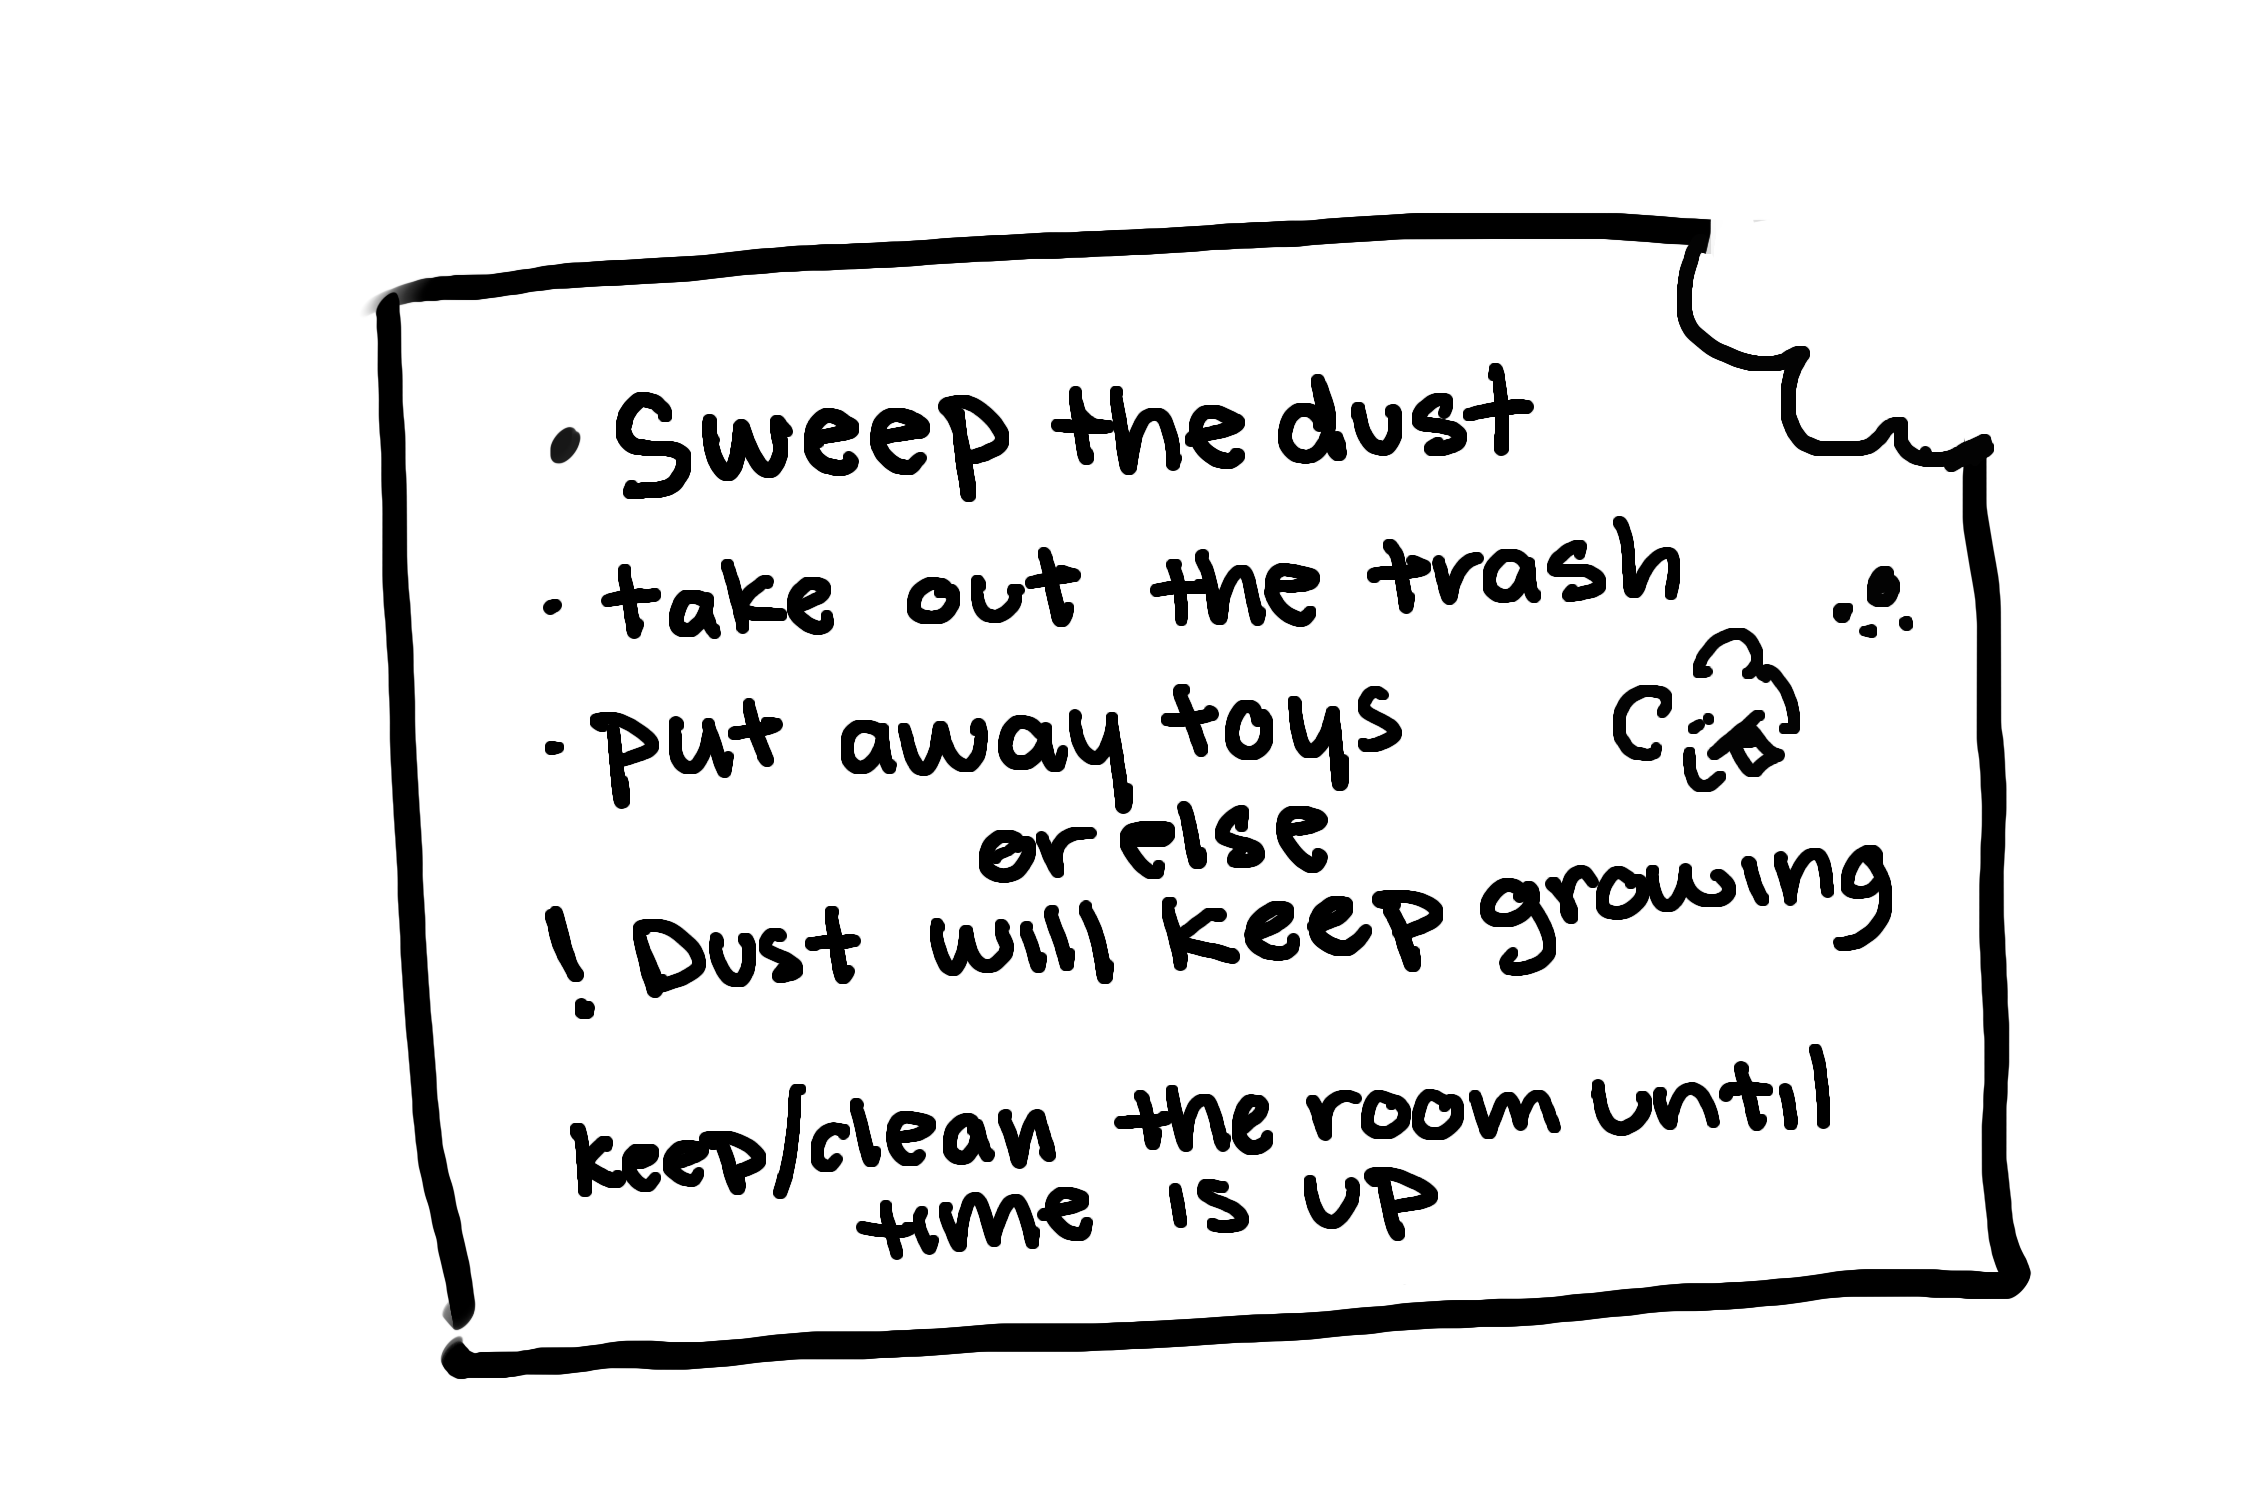 • Sweep the dust
• take out the trash
• put away toys
or else
! Dust will keep growing
keep/clean the room until
time is up